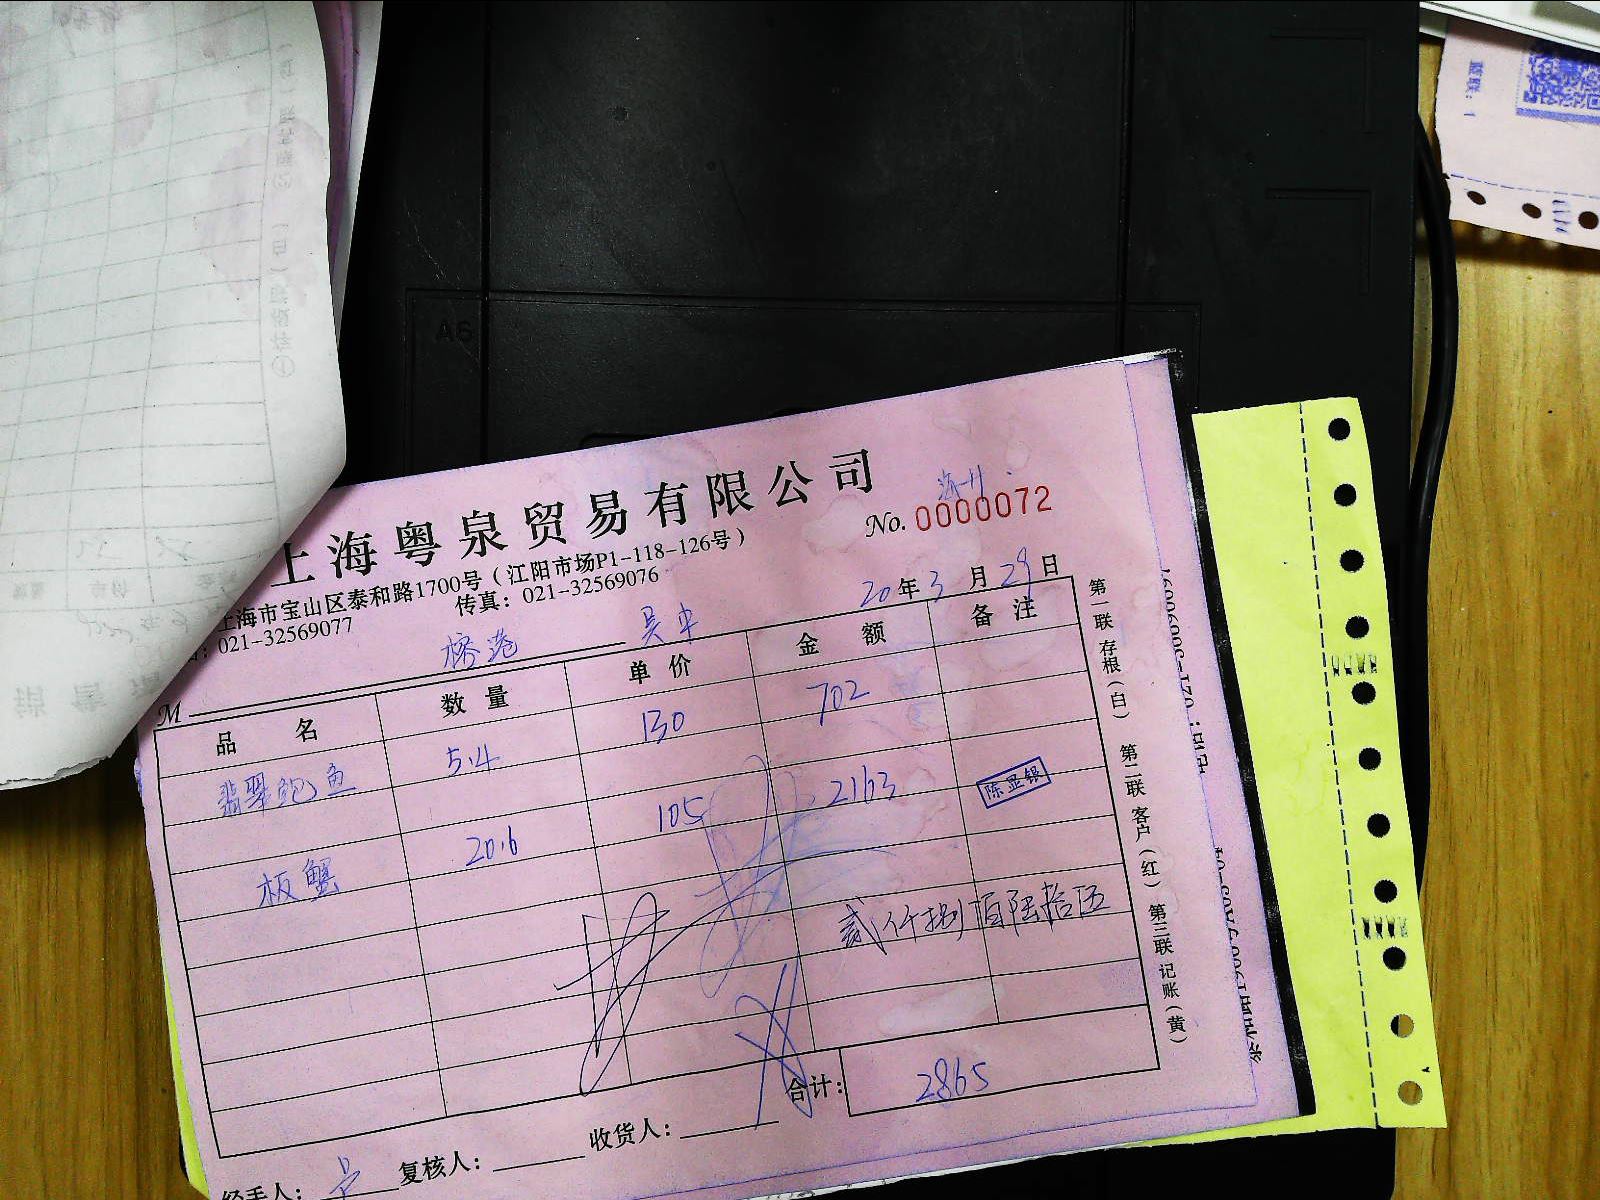 上海粤泉贸易有限公司
No. 0000072
上海市宝山区泰和路1700号（江阳市场P1-118-126号）
021-32569077 传真：021-32569076
20年3月29日
M
品名 数量 单价 金额 备注
翡翠鲍鱼 5.4 130 702
板蟹 20.6 105 2163
陈显银
贰仟捌佰陆拾伍
合计： 2865
经手人： 复核人： 收货人：
第一联 存根（白） 第二联 客户（红） 第三联 记账（黄）
A6